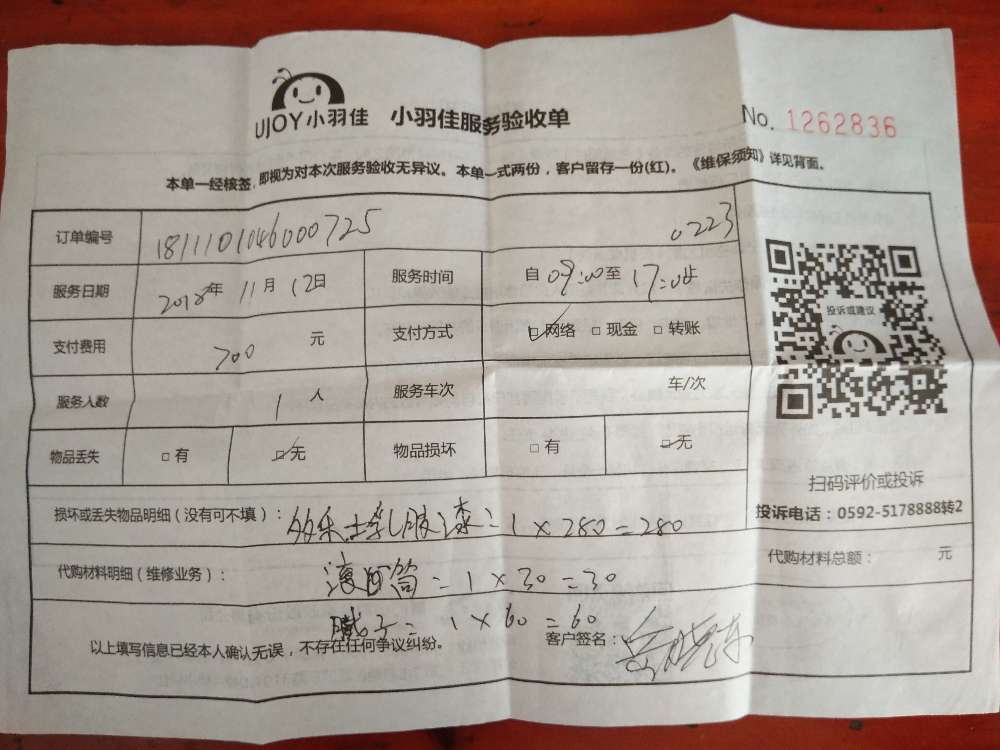 UJOY小羽佳 小羽佳服务验收单 No. 1262836
本单一经核签,即视为对本次服务验收无异议。本单一式两份,客户留存一份(红)。《维保须知》详见背面。
订单编号 1811101046000725 0223
服务日期 2018年 11月 12日 服务时间 自 09:00至 17:00止
支付费用 700 元 支付方式 ☑网络 □现金 □转账
投诉或建议
服务人数 1 人 服务车次 车/次
物品丢失 □有 ☑无 物品损坏 □有 ☑无
扫码评价或投诉
损坏或丢失物品明细(没有可不填): 多乐士乳胶漆=1×280=280
投诉电话:0592-5178888转2
代购材料明细(维修业务): 滚筒=1×30=30
代购材料总额: 元
腻子=1×60=60
以上填写信息已经本人确认无误,不存在任何争议纠纷。 客户签名: